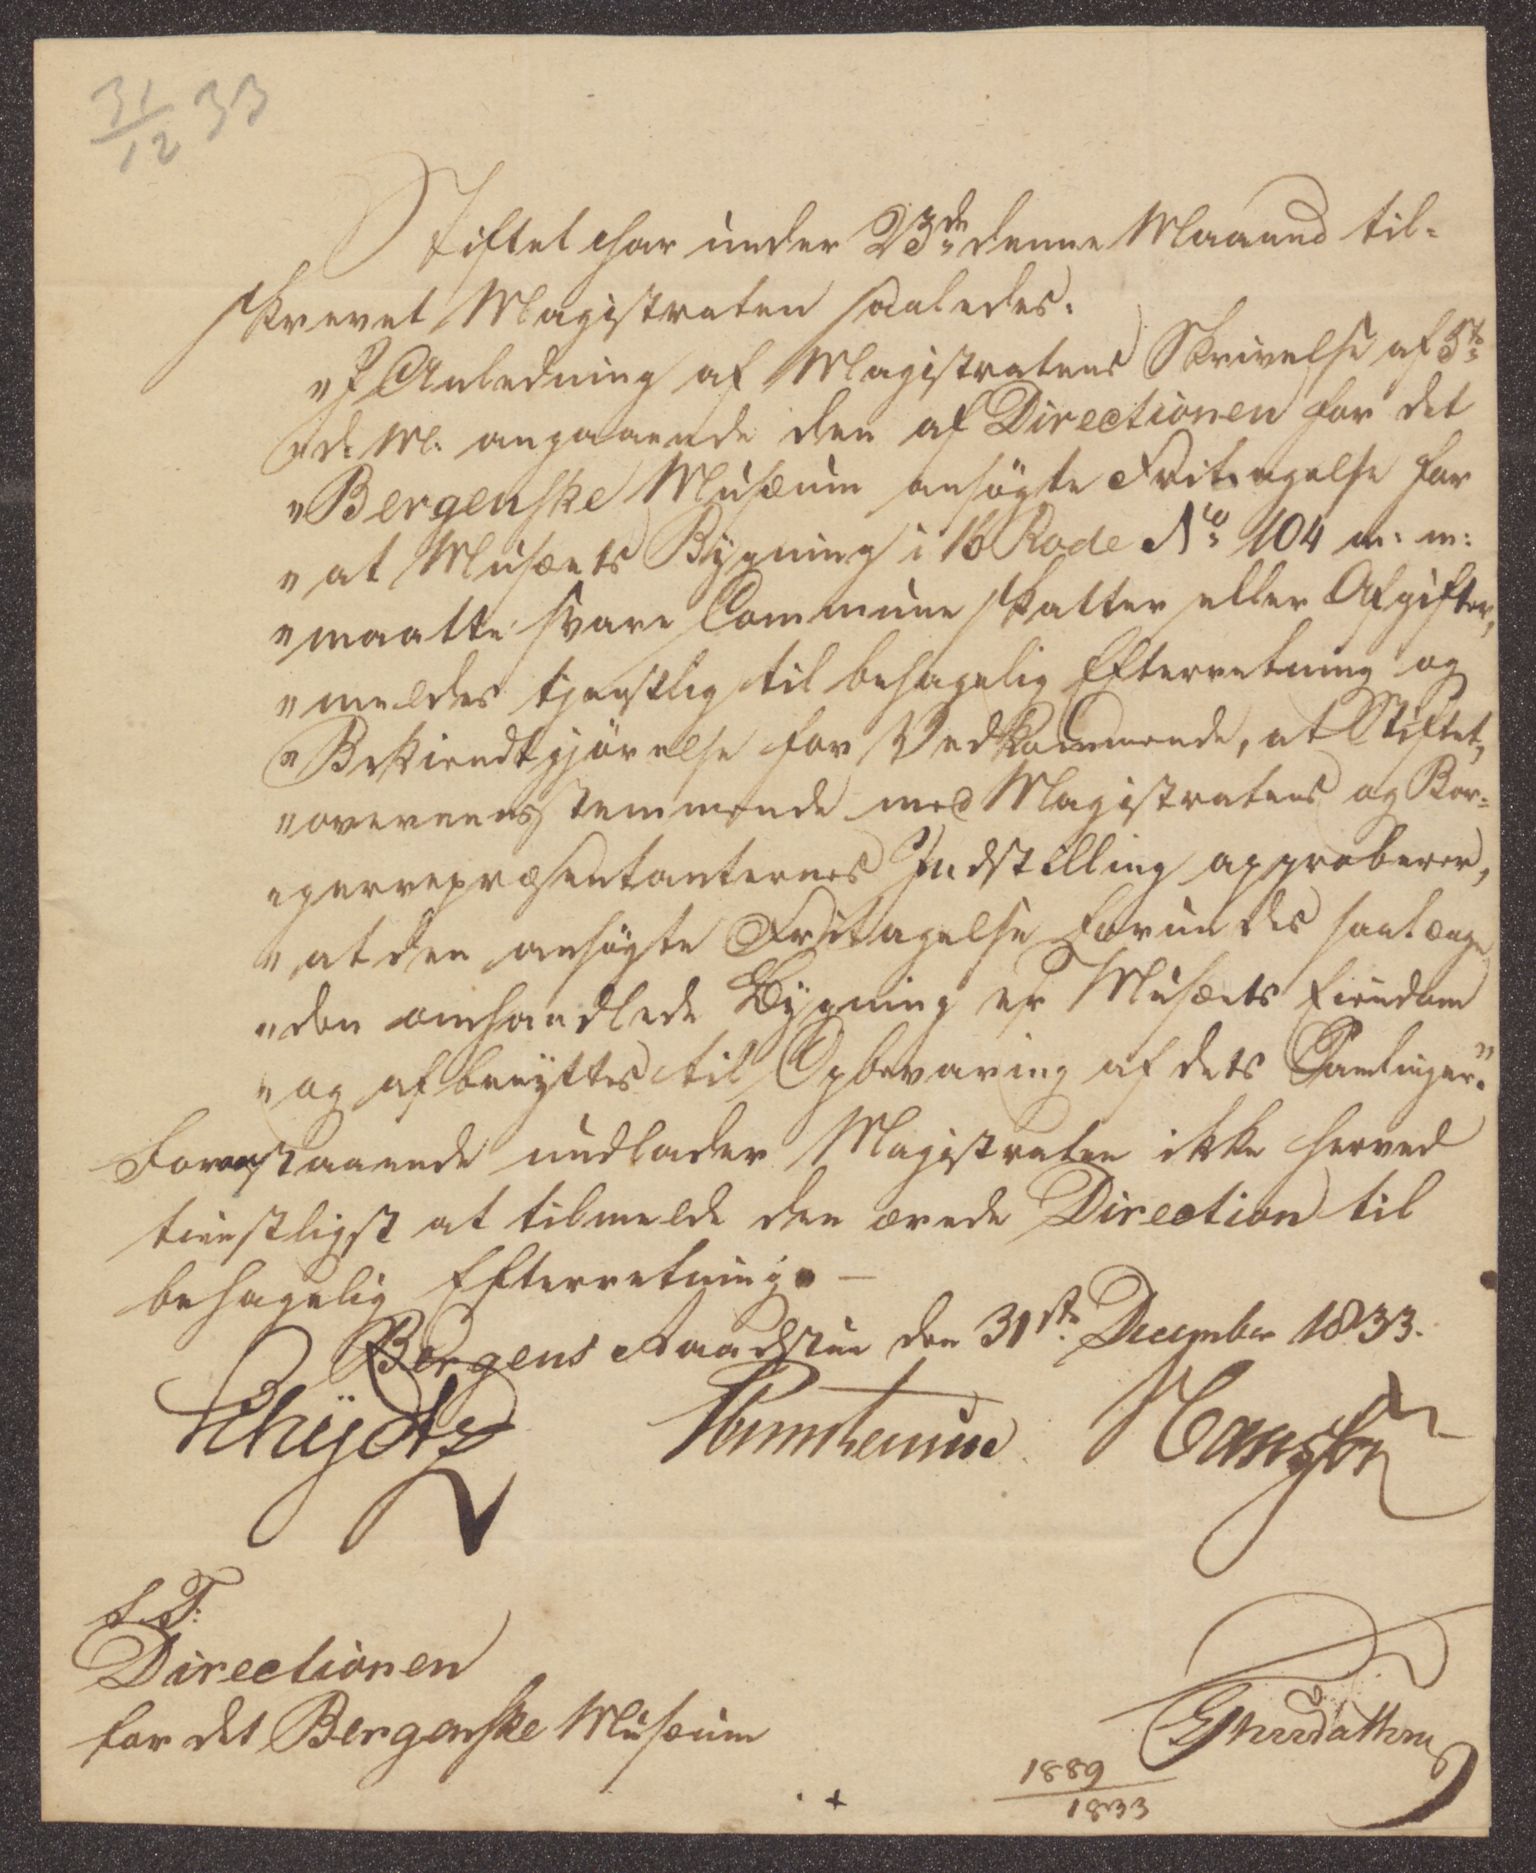 31/12 33
Stiftet har under 23de denne Maaned til-
skrevet Magistraten saaledes:
"I Anledning af Magistratens Skrivelse af 5te
"d: M: angaaende den af Directionen for det
"Bergenske Musæum ansøgte Fritagelse for
"at Musæets Bygning i 16 Rode No 104 m: m:
"maatte svare Commune Skatter eller Afgifter,
"meldes tjenstlig til behagelig Efterretning og
"Bekiendtgjørelse for Vedkommende, at Stiftet,
"overeensstemmende med Magistratens og Bor-
"gerrepræsentanternes Indstilling approberer,
"at den ansøgte Fritagelse forundes saalænge
"den omhandlede Bygning er Musæets Eiendom
"og afbenyttes til Opbevaring af dets Samlinger."
Foranstaaende undlader Magistraten ikke herved
tienstligst at tilmelde den ærede Direction til
behagelig Efterretning. –
Bergens Raadstue den 31te December 1833.
S. T:
Directionen
for det Bergenske Musæum
1889
1833